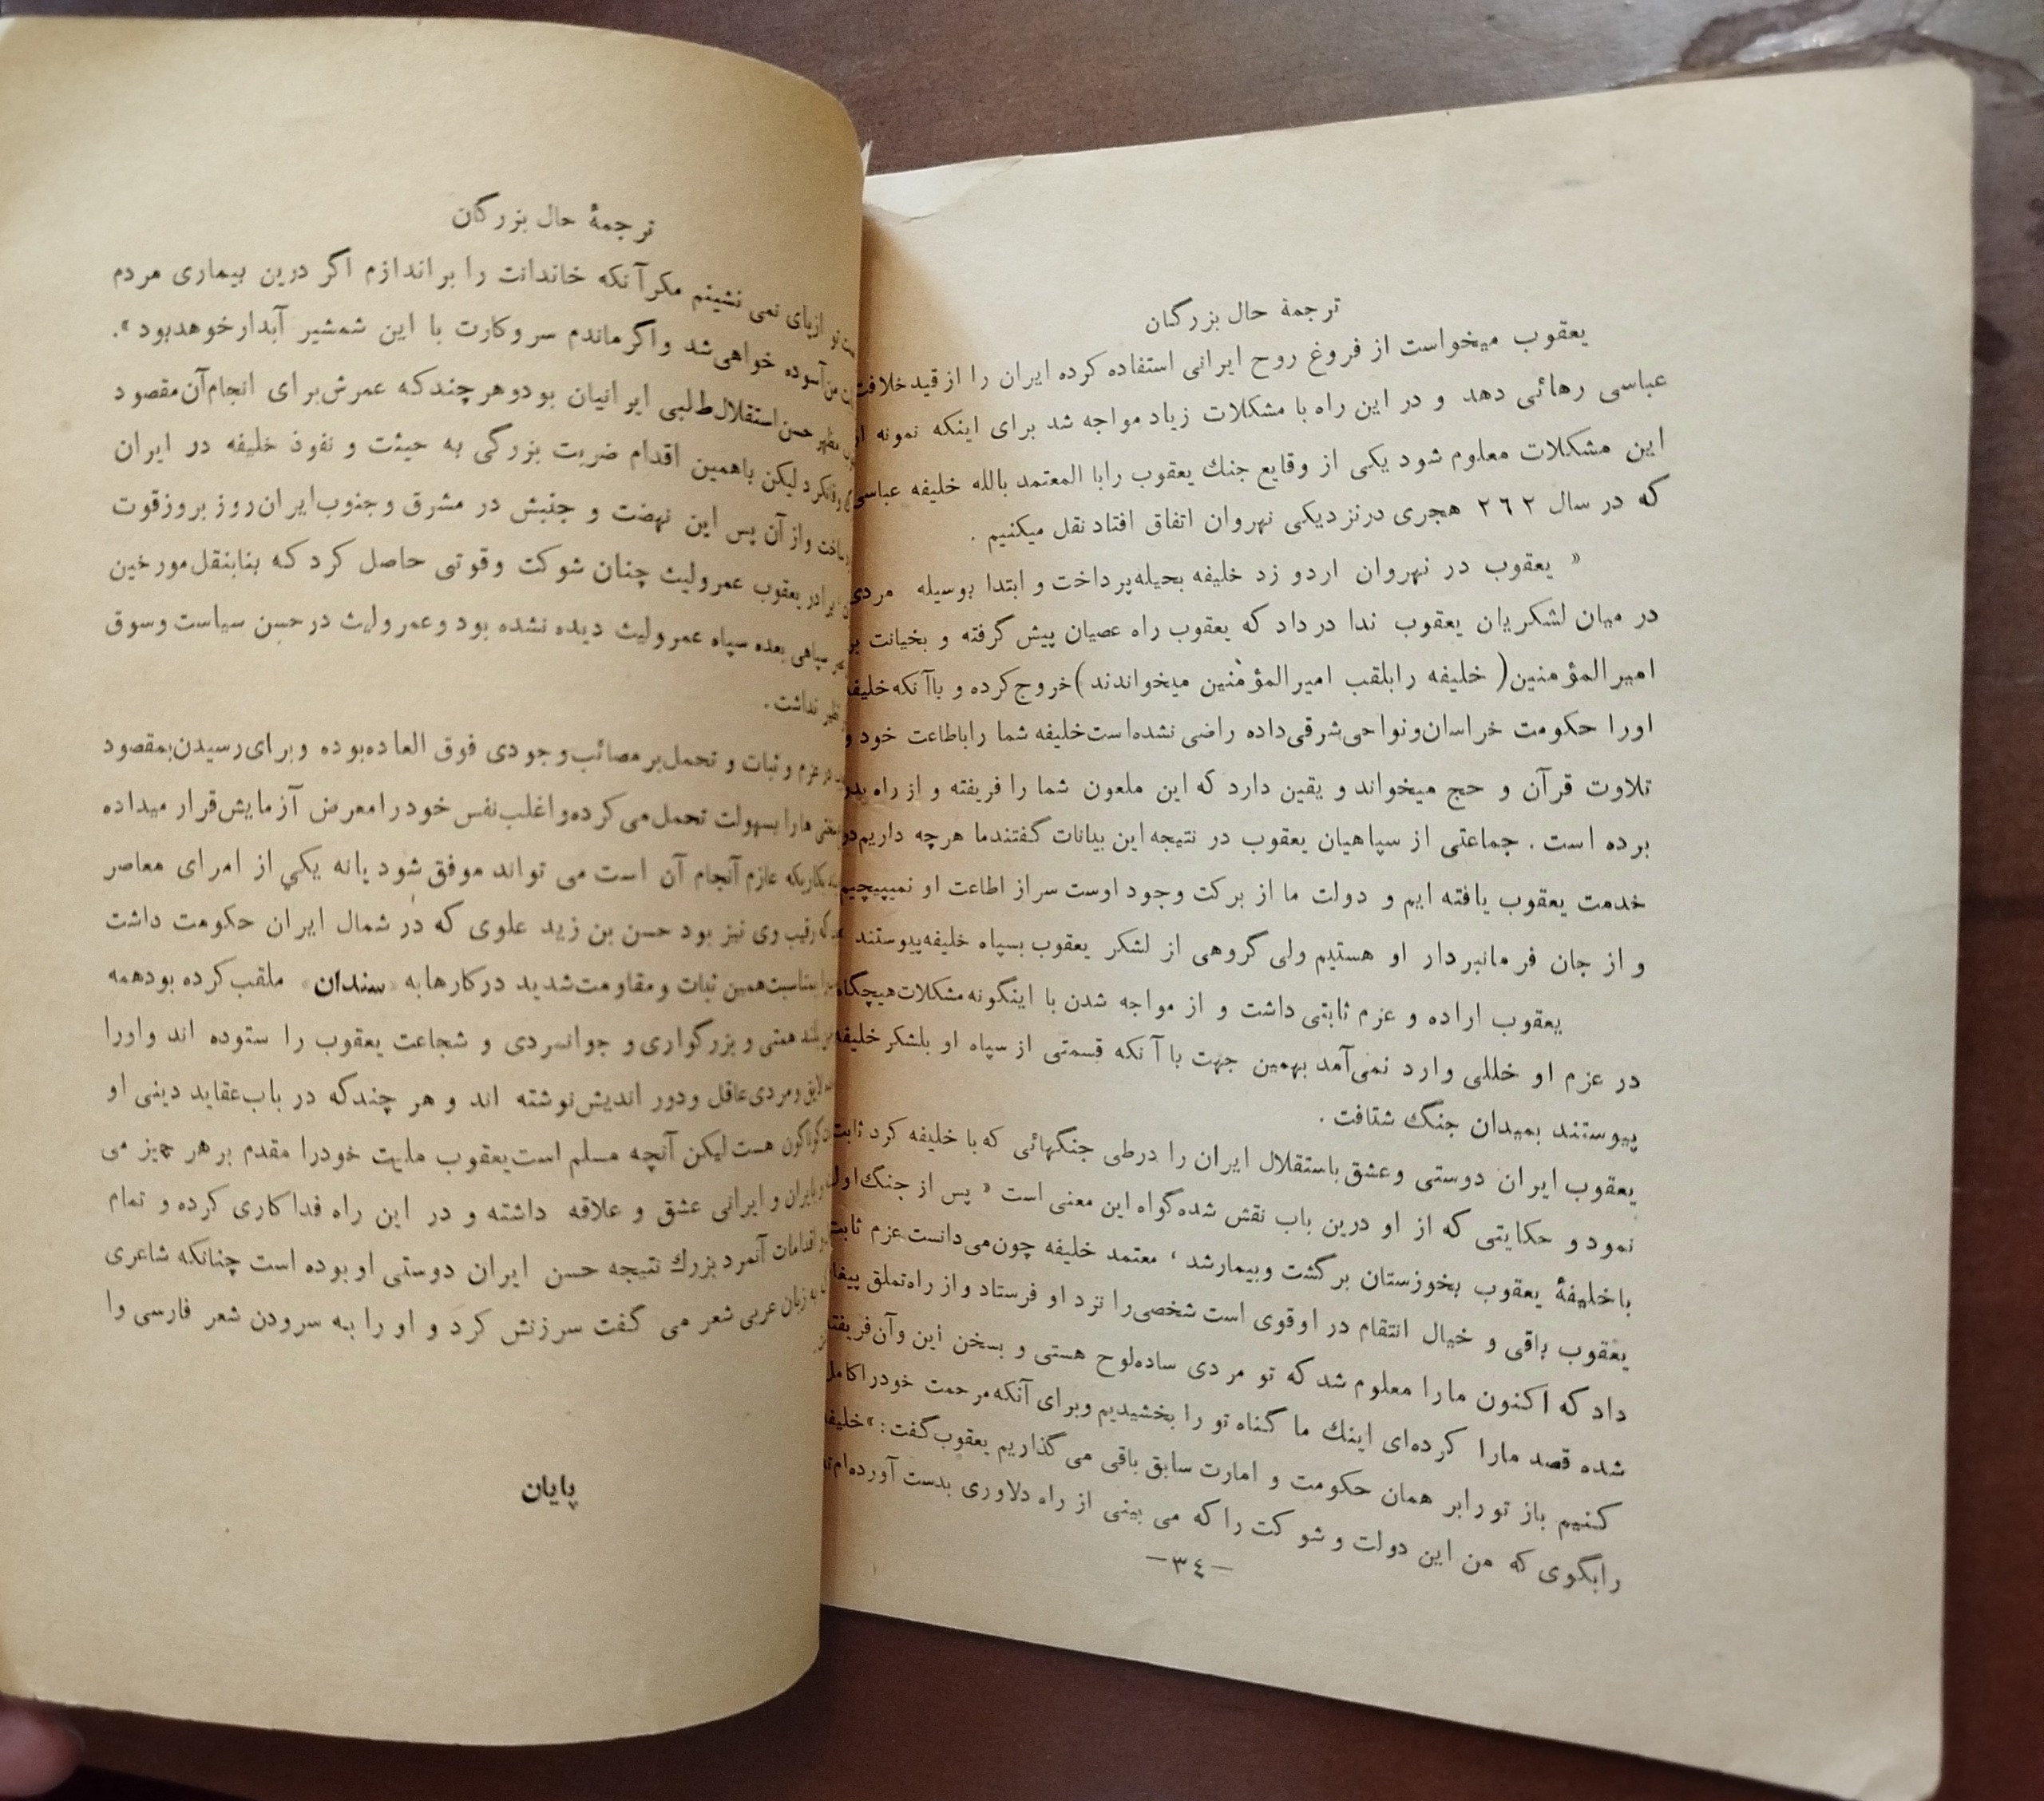 ترجمهٔ حال بزرگان
یعقوب میخواست از فروغ روح ایرانی استفاده کرده ایران را از قید خلافت
عباسی رهائی دهد و در این راه با مشکلات زیاد مواجه شد برای اینکه نمونه از
این مشکلات معلوم شود یکی از وقایع جنك یعقوب رابا المعتمد بالله خلیفه عباسی
که در سال ۲۶۲ هجری درنزدیکی نهروان اتفاق افتاد نقل میکنیم .
« یعقوب در نهروان اردو زد خلیفه بحیله پرداخت و ابتدا بوسیله مردی
در میان لشکریان یعقوب ندا درداد که یعقوب راه عصیان پیش گرفته و بخیانت بر
امیرالمؤمنین ( خلیفه رابلقب امیرالمؤمنین میخواندند ) خروج کرده و باآنکه خلیفه
اورا حکومت خراسان ونواحی شرقی داده راضی نشده است خلیفه شما راباطاعت خود و
تلاوت قرآن و حج میخواند و یقین دارد که این ملعون شما را فریفته و از راه بدر
برده است . جماعتی از سپاهیان یعقوب در نتیجه این بیانات گفتند ما هرچه داریم در
خدمت یعقوب یافته ایم و دولت ما از برکت وجود اوست سراز اطاعت او نمیپیچیم
و از جان فرمانبردار او هستیم ولی گروهی از لشکر یعقوب بسپاه خلیفه پیوستند
یعقوب اراده و عزم ثابتی داشت و از مواجه شدن با اینگونه مشکلات هیچگاه
در عزم او خللی وارد نمی‌آمد بهمین جهت با آنکه قسمتی از سپاه او بلشکر خلیفه
پیوستند بمیدان جنگ شتافت .
یعقوب ایران دوستی وعشق باستقلال ایران را درطی جنگهائی که با خلیفه کرد ثابت
نمود و حکایتی که از او درین باب نقش شده گواه این معنی است « پس از جنگ اول
باخلیفهٔ یعقوب بخوزستان برگشت وبیمارشد ، معتمد خلیفه چون می‌دانست عزم ثابت
یعقوب باقی و خیال انتقام در اوقوی است شخصی را نزد او فرستاد واز راه تملق پیغام
داد که اکنون مارا معلوم شد که تو مردی ساده‌لوح هستی و بسخن این وآن فریفته
شده قصد مارا کرده‌ای اینك ما گناه تو را بخشیدیم وبرای آنکه مرحمت خودرا کامل
کنیم باز تورابر همان حکومت و امارت سابق باقی می گذاریم یعقوب گفت : «خلیفه
رابگوی که من این دولت و شوکت را که می بینی از راه دلاوری بدست آورده‌ام
-۳٤-
ترجمهٔ حال بزرگان
تو ازپای نمی نشینم مگرآنکه خاندانت را براندازم اگر درین بیماری مردم
من آسوده خواهی شد واگرماندم سروکارت با این شمشیر آبدارخوهدبود ».
مظهر حسن استقلال طلبی ایرانیان بود و هرچندکه عمرش برای انجام آن مقصود
وفانکرد لیکن باهمین اقدام ضربت بزرگی به حیثت و نفوذ خلیفه در ایران
واز آن پس این نهضت و جنبش در مشرق وجنوب ایران روز بروز قوت
برادر یعقوب عمرولیث چنان شوکت وقوتی حاصل کرد که بنابنقل مورخین
سپاهی بعده سپاه عمرولیث دیده نشده بود وعمرولیث درحسن سیاست وسوق
نظیر نداشت .
عزم وثبات و تحمل بر مصائب وجودی فوق العاده بوده وبرای رسیدن بمقصود
سختی هارا بسهولت تحمل می کرده واغلب نفس خودرامعرض آزمایش قرار میداده
بکاریکه عازم آنجام آن است می تواند موفق شود یانه یکي از امرای معاصر
که رقیب وی نیز بود حسن بن زید علوی که در شمال ایران حکومت داشت
بمناسبت همین ثبات و مقاومت شدید درکارها به «سندان» ملقب کرده بودهمه
بلند همتی و بزرگواری و جوانمردی و شجاعت یعقوب را ستوده اند واورا
لایق ومردی عاقل ودور اندیش نوشته اند و هر چندکه در باب عقاید دینی او
گوناگون هست لیکن آنچه مسلم است یعقوب ملیت خودرا مقدم برهر چیز می
بایران و ایرانی عشق و علاقه داشته و در این راه فداکاری کرده و تمام
اقدامات آنمرد بزرك نتیجه حسن ایران دوستی او بوده است چنانکه شاعری
به زبان عربی شعر می گفت سرزنش کرد و او را به سرودن شعر فارسی وا
پایان